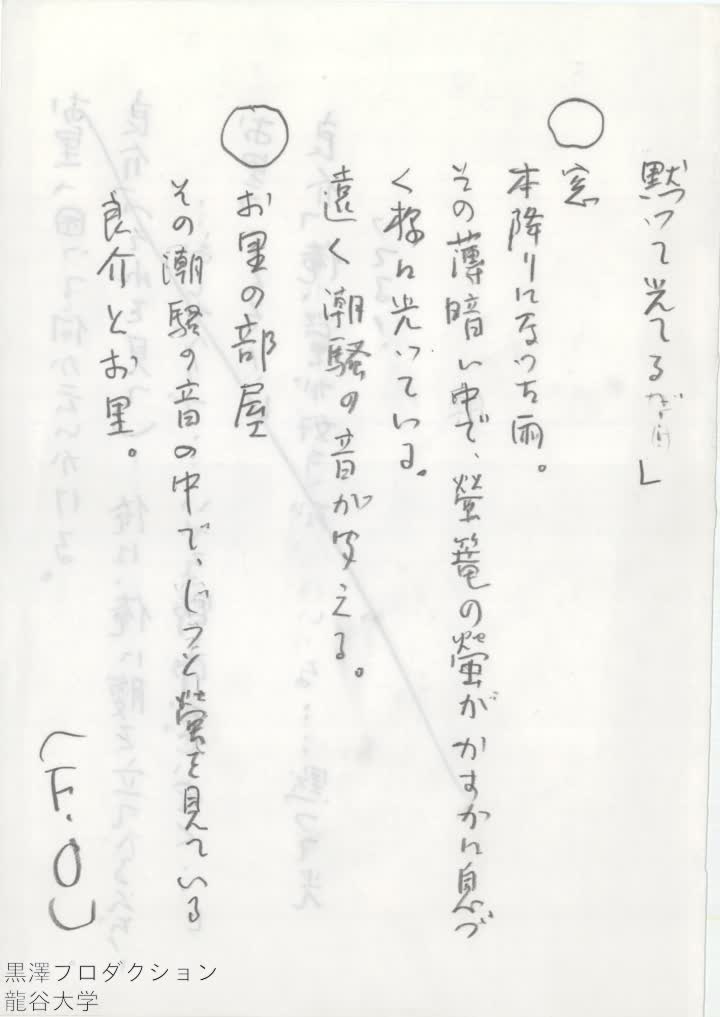 黙つて光てるだけ」
○
窓
本降りになつた雨。
その薄暗い中で、螢篭の螢がかすかに息づ
く様に光っている。
遠く潮騒の音が聞える。
○
お里の部屋
その潮騒の音の中で、じつと螢を見ている
良介とお里。
(F.O)
黒澤プロダクション
龍谷大学